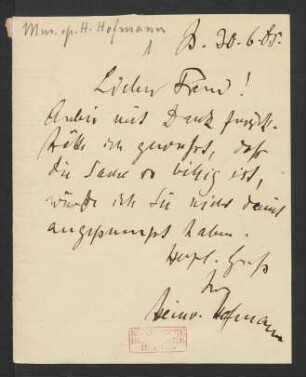 Mus. ep. H. Hofmann
B. 30.6.85.
Lieber Freund!
Anbei mit Dank zurück.
Hätte ich gewusst, dass
die Sache so billig ist,
würde ich Sie nicht damit
angepumpt haben.
Herzl. Gruß
Ihr
Heinr. Hofmann